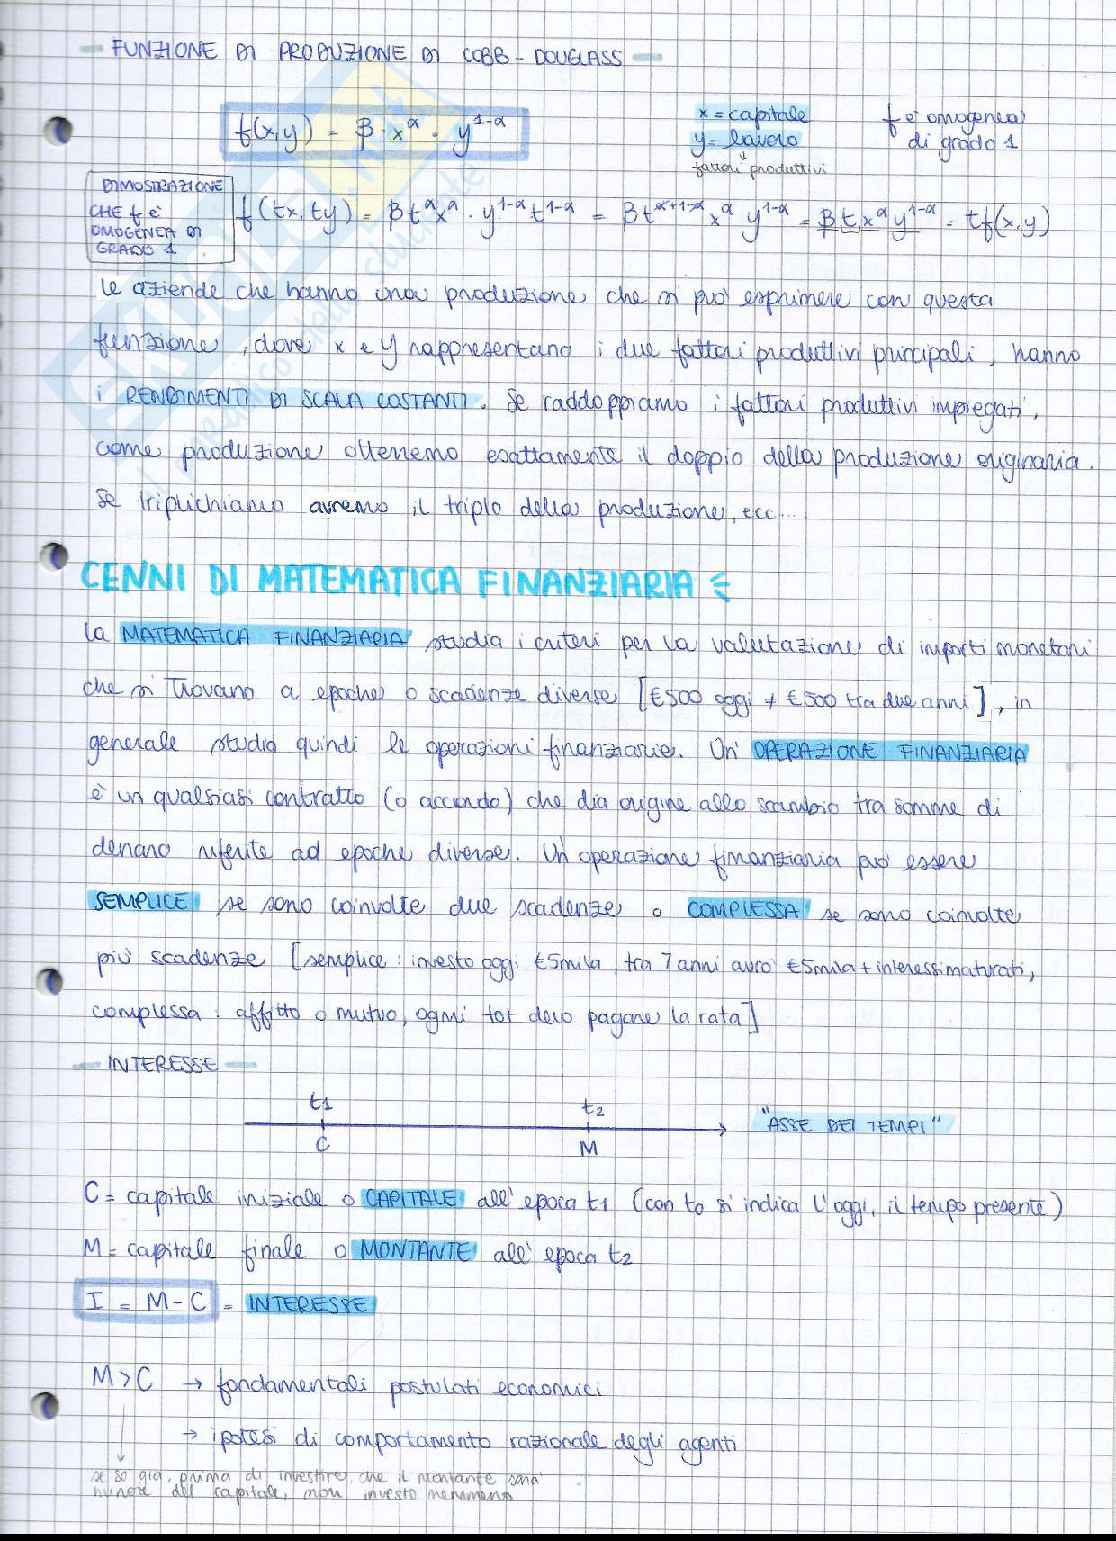 FUNZIONE DI PRODUZIONE DI COBB - DOUGLASS
f(x,y) = β · x^α · y^1-α
x = capitale
y = lavoro
fattori produttivi
f è omogenea
di grado 1
DIMOSTRAZIONE
CHE f è
OMOGENEA DI
GRADO 1
f(tx, ty) = βt^αx^α · y^1-αt^1-α = βt^α+1-α x^α y^1-α = βtx^αy^1-α = tf(x,y)
Le aziende che hanno una produzione, che si può esprimere con questa
funzione, dove x e y rappresentano i due fattori produttivi principali, hanno
i RENDIMENTI DI SCALA COSTANTI. Se raddoppiamo i fattori produttivi impiegati,
come produzione otterremo esattamente il doppio della produzione originaria.
Se triplichiamo avremo il triplo della produzione, ecc...
CENNI DI MATEMATICA FINANZIARIA
La MATEMATICA FINANZIARIA studia i criteri per la valutazione di importi monetari
che si trovano a epoche o scadenze diverse [€500 oggi ≠ €500 tra due anni], in
generale studia quindi le operazioni finanziarie. Un' OPERAZIONE FINANZIARIA
è un qualsiasi contratto (o accordo) che dia origine allo scambio tra somme di
denaro riferite ad epoche diverse. Un'operazione finanziaria può essere
SEMPLICE se sono coinvolte due scadenze, o COMPLESSA se sono coinvolte
più scadenze [semplice: investo oggi €5mila, tra 7 anni avrò €5mila + interessi maturati,
complessa: affitto o mutuo, ogni tot devo pagare la rata]
INTERESSE
t1 t2
"ASSE DEI TEMPI"
C M
C = capitale iniziale o CAPITALE all'epoca t1 (con to si indica l'oggi, il tempo presente)
M = capitale finale o MONTANTE all'epoca t2
I = M - C = INTERESSE
M > C → fondamentali postulati economici
→ ipotesi di comportamento razionale degli agenti
se so già, prima di investire, che il montante sarà
minore del capitale, non investo nemmeno